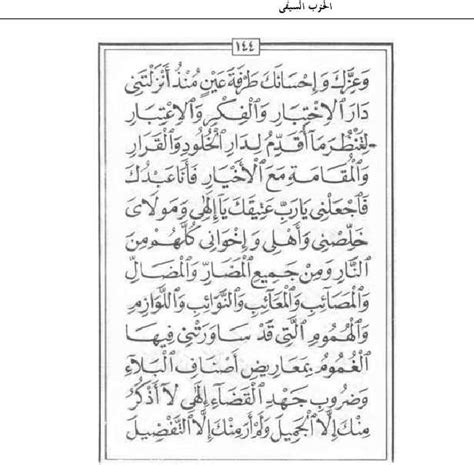 الحزب السيفى
١٤٤
وَعِزَّكَ وَإِحْسَانَكَ طَرْفَةَ عَيْنٍ مُنْذُ أَنْزَلْتَنِى
دَارَ الْاِخْتِبَارِ وَالْفِكْرِ وَالْاِعْتِبَارِ
لِتَنْظُرَ مَا أُقَدِّمُ لِدَارِ الْخُلُودِ وَالْقَرَارِ
وَالْمُقَامَةِ مَعَ الْأَخْيَارِ فَأَنَا عَبْدُكَ
فَاجْعَلْنِى يَارَبِّ عَتِيقَكَ يَا إِلٰهِى وَمَوْلَاىَ
خَلِّصْنِى وَأَهْلِى وَإِخْوَانِى كُلَّهُمْ مِنَ
النَّارِ وَمِنْ جَمِيعِ الْمَضَارِّ وَالْمَضَالِّ
وَالْمَصَائِبِ وَالْمَعَائِبِ وَالنَّوَائِبِ وَاللَّوَازِمِ
وَالْهُمُومِ الَّتِى قَدْ سَاوَرَتْنِى فِيهَا
الْغُمُومُ بِمَعَارِيضِ أَصْنَافِ الْبَلَاءِ
وَضُرُوبِ جَهْدِ الْقَضَاءِ إِلٰهِى لَا أَذْكُرُ
مِنْكَ إِلَّا الْجَمِيلَ وَلَمْ أَرَ مِنْكَ إِلَّا التَّفْضِيلَ